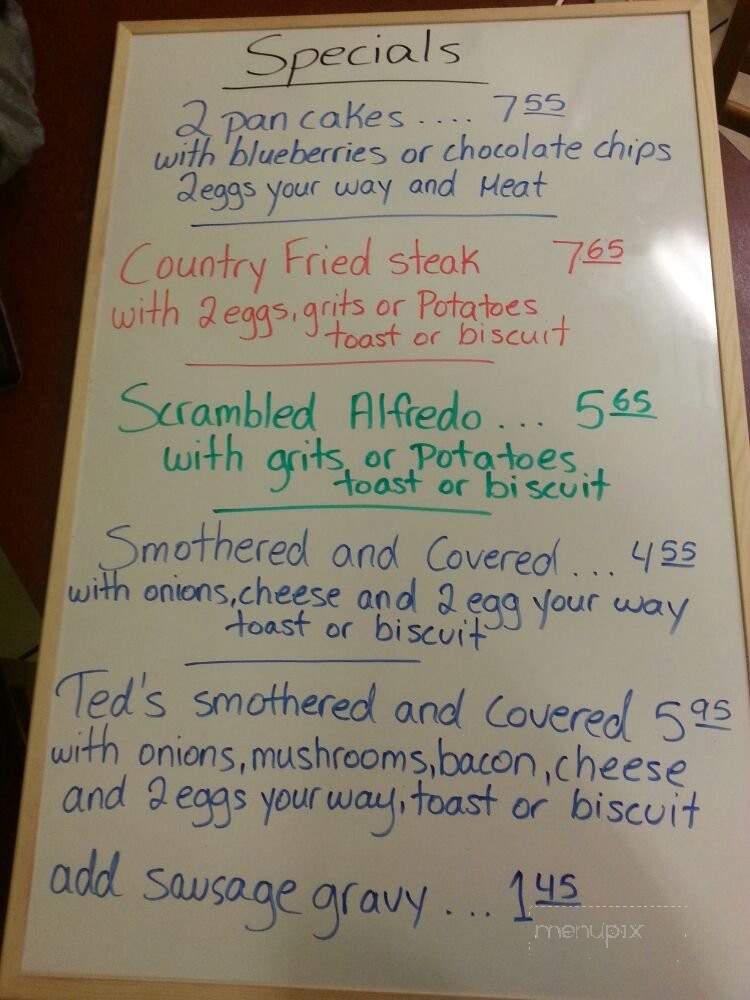 Specials
2 pancakes .... 7 55
with blueberries or chocolate chips
2eggs your way and Meat
Country Fried steak 7 65
with 2eggs, grits or Potatoes
toast or biscuit
Scrambled Alfredo ... 5 65
with grits or Potatoes
toast or biscuit
Smothered and Covered ... 4 55
with onions, cheese and 2 egg your way
toast or biscuit
Ted's smothered and Covered 5 95
with onions, mushrooms, bacon, cheese
and 2eggs your way, toast or biscuit
add sausage gravy ... 1 45
menupix